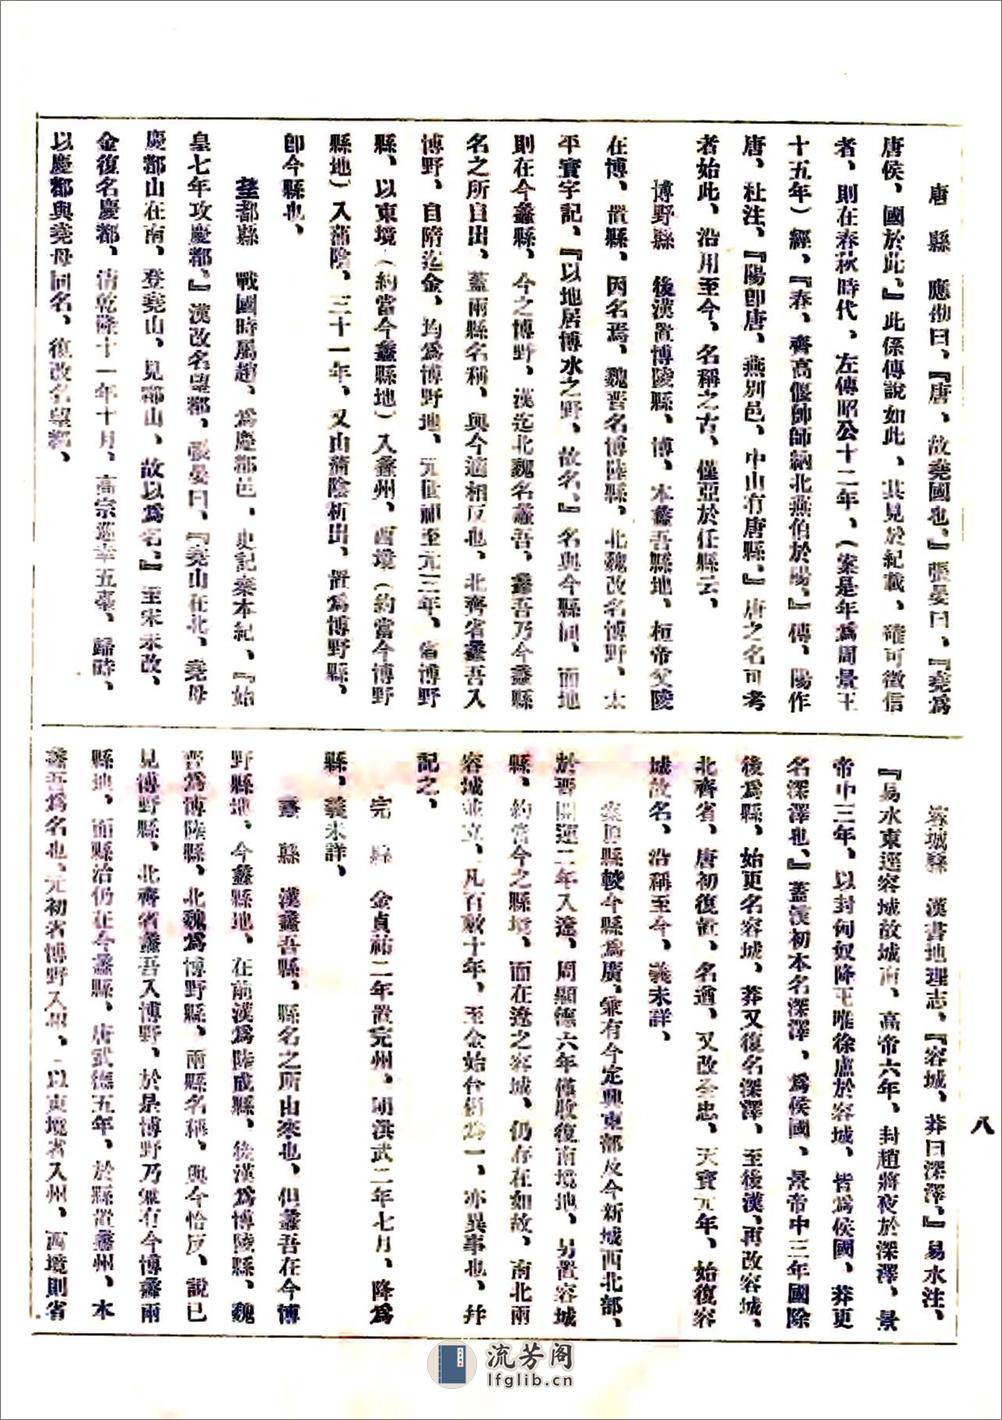 唐　縣　應劭曰、『唐、故堯國也、』張晏曰、『堯爲
唐侯、國於此、』此係傳說如此、其見於紀載、確可徵信
者、則在春秋時代、左傳昭公十二年、（案是年爲周景王
十五年）經、『春、齊高偃帥師納北燕伯於陽、』傳、陽作
唐、杜注、『陽卽唐、燕別邑、中山有唐縣、』唐之名可考
者始此、沿用至今、名稱之古、僅亞於任縣云、
博野縣　後漢置博陵縣、博、本蠡吾縣地、桓帝父陵
在博、置縣、因名焉、魏晋名博陸縣、北魏改名博野、太
平寰宇記、『以地居博水之野、故名、』名與今縣同、而地
則在今蠡縣、今之博野、漢迄北魏名蠡吾、蠡吾乃今蠡縣
名之所自出、蓋兩縣名稱、與今適相反也、北齊省蠡吾入
博野、自隋迄金、均爲博野地、元世祖至元三年、省博野
縣、以東境（約當今蠡縣地）入蠡州、西境（約當今博野
縣地）入蒲陰、三十一年、又由蒲陰析出、置爲博野縣、
卽今縣也、
望都縣　戰國時屬趙、爲慶都邑、史記秦本紀、『始
皇七年攻慶都、』漢改名望都、張晏曰、『堯山在北、堯母
慶都山在南、登堯山、見都山、故以爲名、』至宋未改、
金復名慶都、清乾隆十一年十月、高宗巡幸五臺、歸時、
以慶都與堯母同名、復改名望都、
容城縣　漢書地理志、『容城、莽曰深澤、』易水注、
『易水東逕容城故城南、高帝六年、封趙將夜於深澤、景
帝中三年、以封匈奴降王唯徐盧於容城、皆爲侯國、莽更
名深澤也、』蓋漢初本名深澤、爲侯國、景帝中三年國除
後爲縣、始更名容城、莽又復名深澤、至後漢、再改容城、
北齊省、唐初復置、名遒、又改全忠、天寶元年、始復容
城故名、沿稱至今、義未詳、
案舊縣較今縣爲廣、兼有今定興東部及今新城西北部、
於晋開運二年入遼、周顯德六年僅收復南境地、另置容城
縣、約當今之縣境、而在遼之容城、仍存在如故、南北兩
容城並立、凡百數十年、至金始合併爲一、亦異事也、幷
記之、
完　縣　金貞祐二年置完州、明洪武二年七月、降爲
縣、義未詳、
蠡　縣　漢蠡吾縣、縣名之所由來也、但蠡吾在今博
野縣地、今蠡縣地、在前漢爲陸成縣、後漢爲博陵縣、魏
晋爲博陸縣、北魏爲博野縣、兩縣名稱、與今恰反、說已
見博野縣、北齊省蠡吾入博野、於是博野乃兼有今博蠡兩
縣地、而縣治仍在今蠡縣、唐武德五年、於縣置蠡州、本
蠡吾爲名也、元初省博野入州、以東境省入州、西境則省
八
流芳阁
lfglib.cn